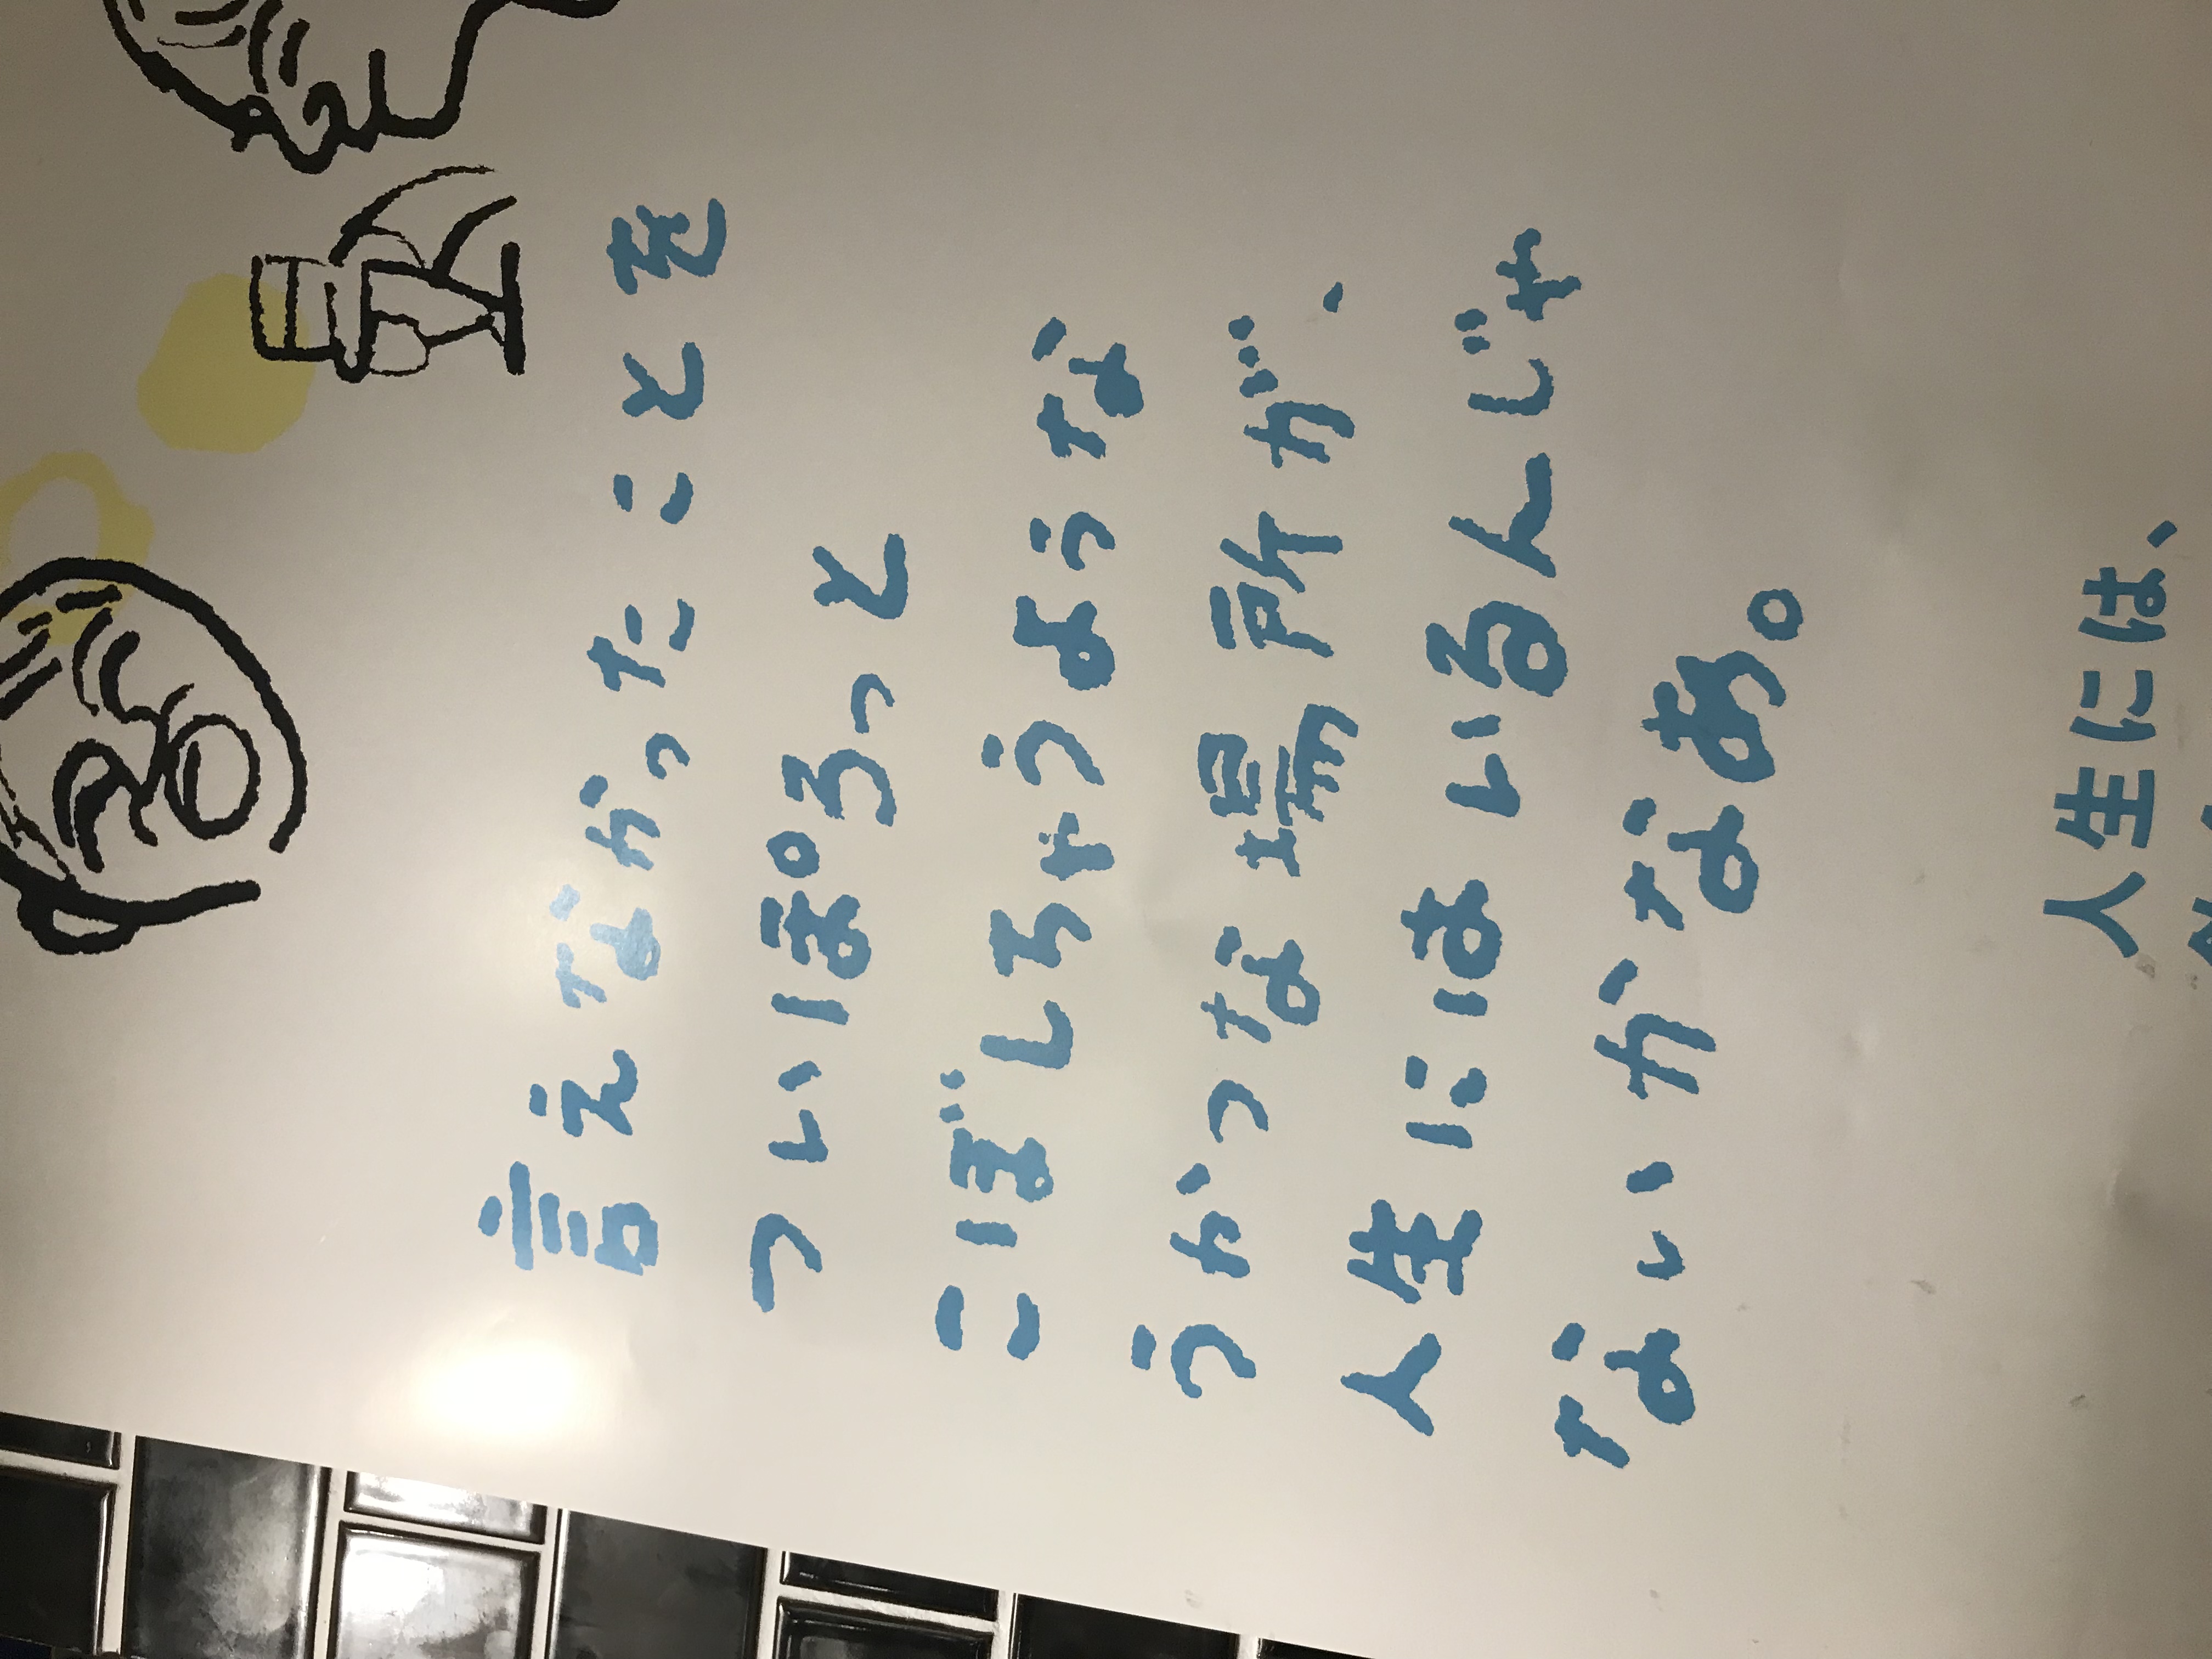 言えなかったことを
ついぽろっと
こぼしちゃうような
うわつな場所が、
人生にはいるんじゃ
ないかなあ。
人生には、